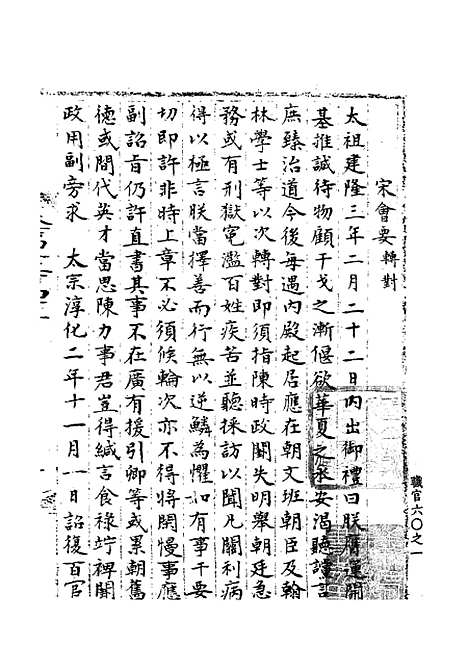 宋會要 轉對
太祖建隆三年二月二十二日內出御禮曰朕膺運開
基推誠待物顧干戈之漸偃欲華夏之永安渴聽讜言
庶臻治道今後每遇內殿起居應在朝文班朝臣及翰
林學士等以次轉對即須指陳時政闕失明舉朝廷急
務或有刑獄寃濫百姓疾苦並聽採訪以聞凡關利病
得以極言朕當擇善而行無以逆鱗為懼如有事干要
切即許非時上章不必須候輪次亦不得將閑慢事應
副詔旨仍許直書其事不在廣有援引卿等或累朝舊
德或間代英才當思陳力事君豈得緘言食祿竚裨闕
政用副旁求 太宗淳化二年十一月一日詔復百官
職官六〇之一